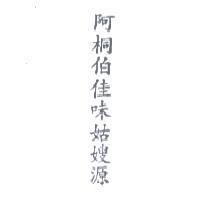 阿桐伯佳味姑嫂源